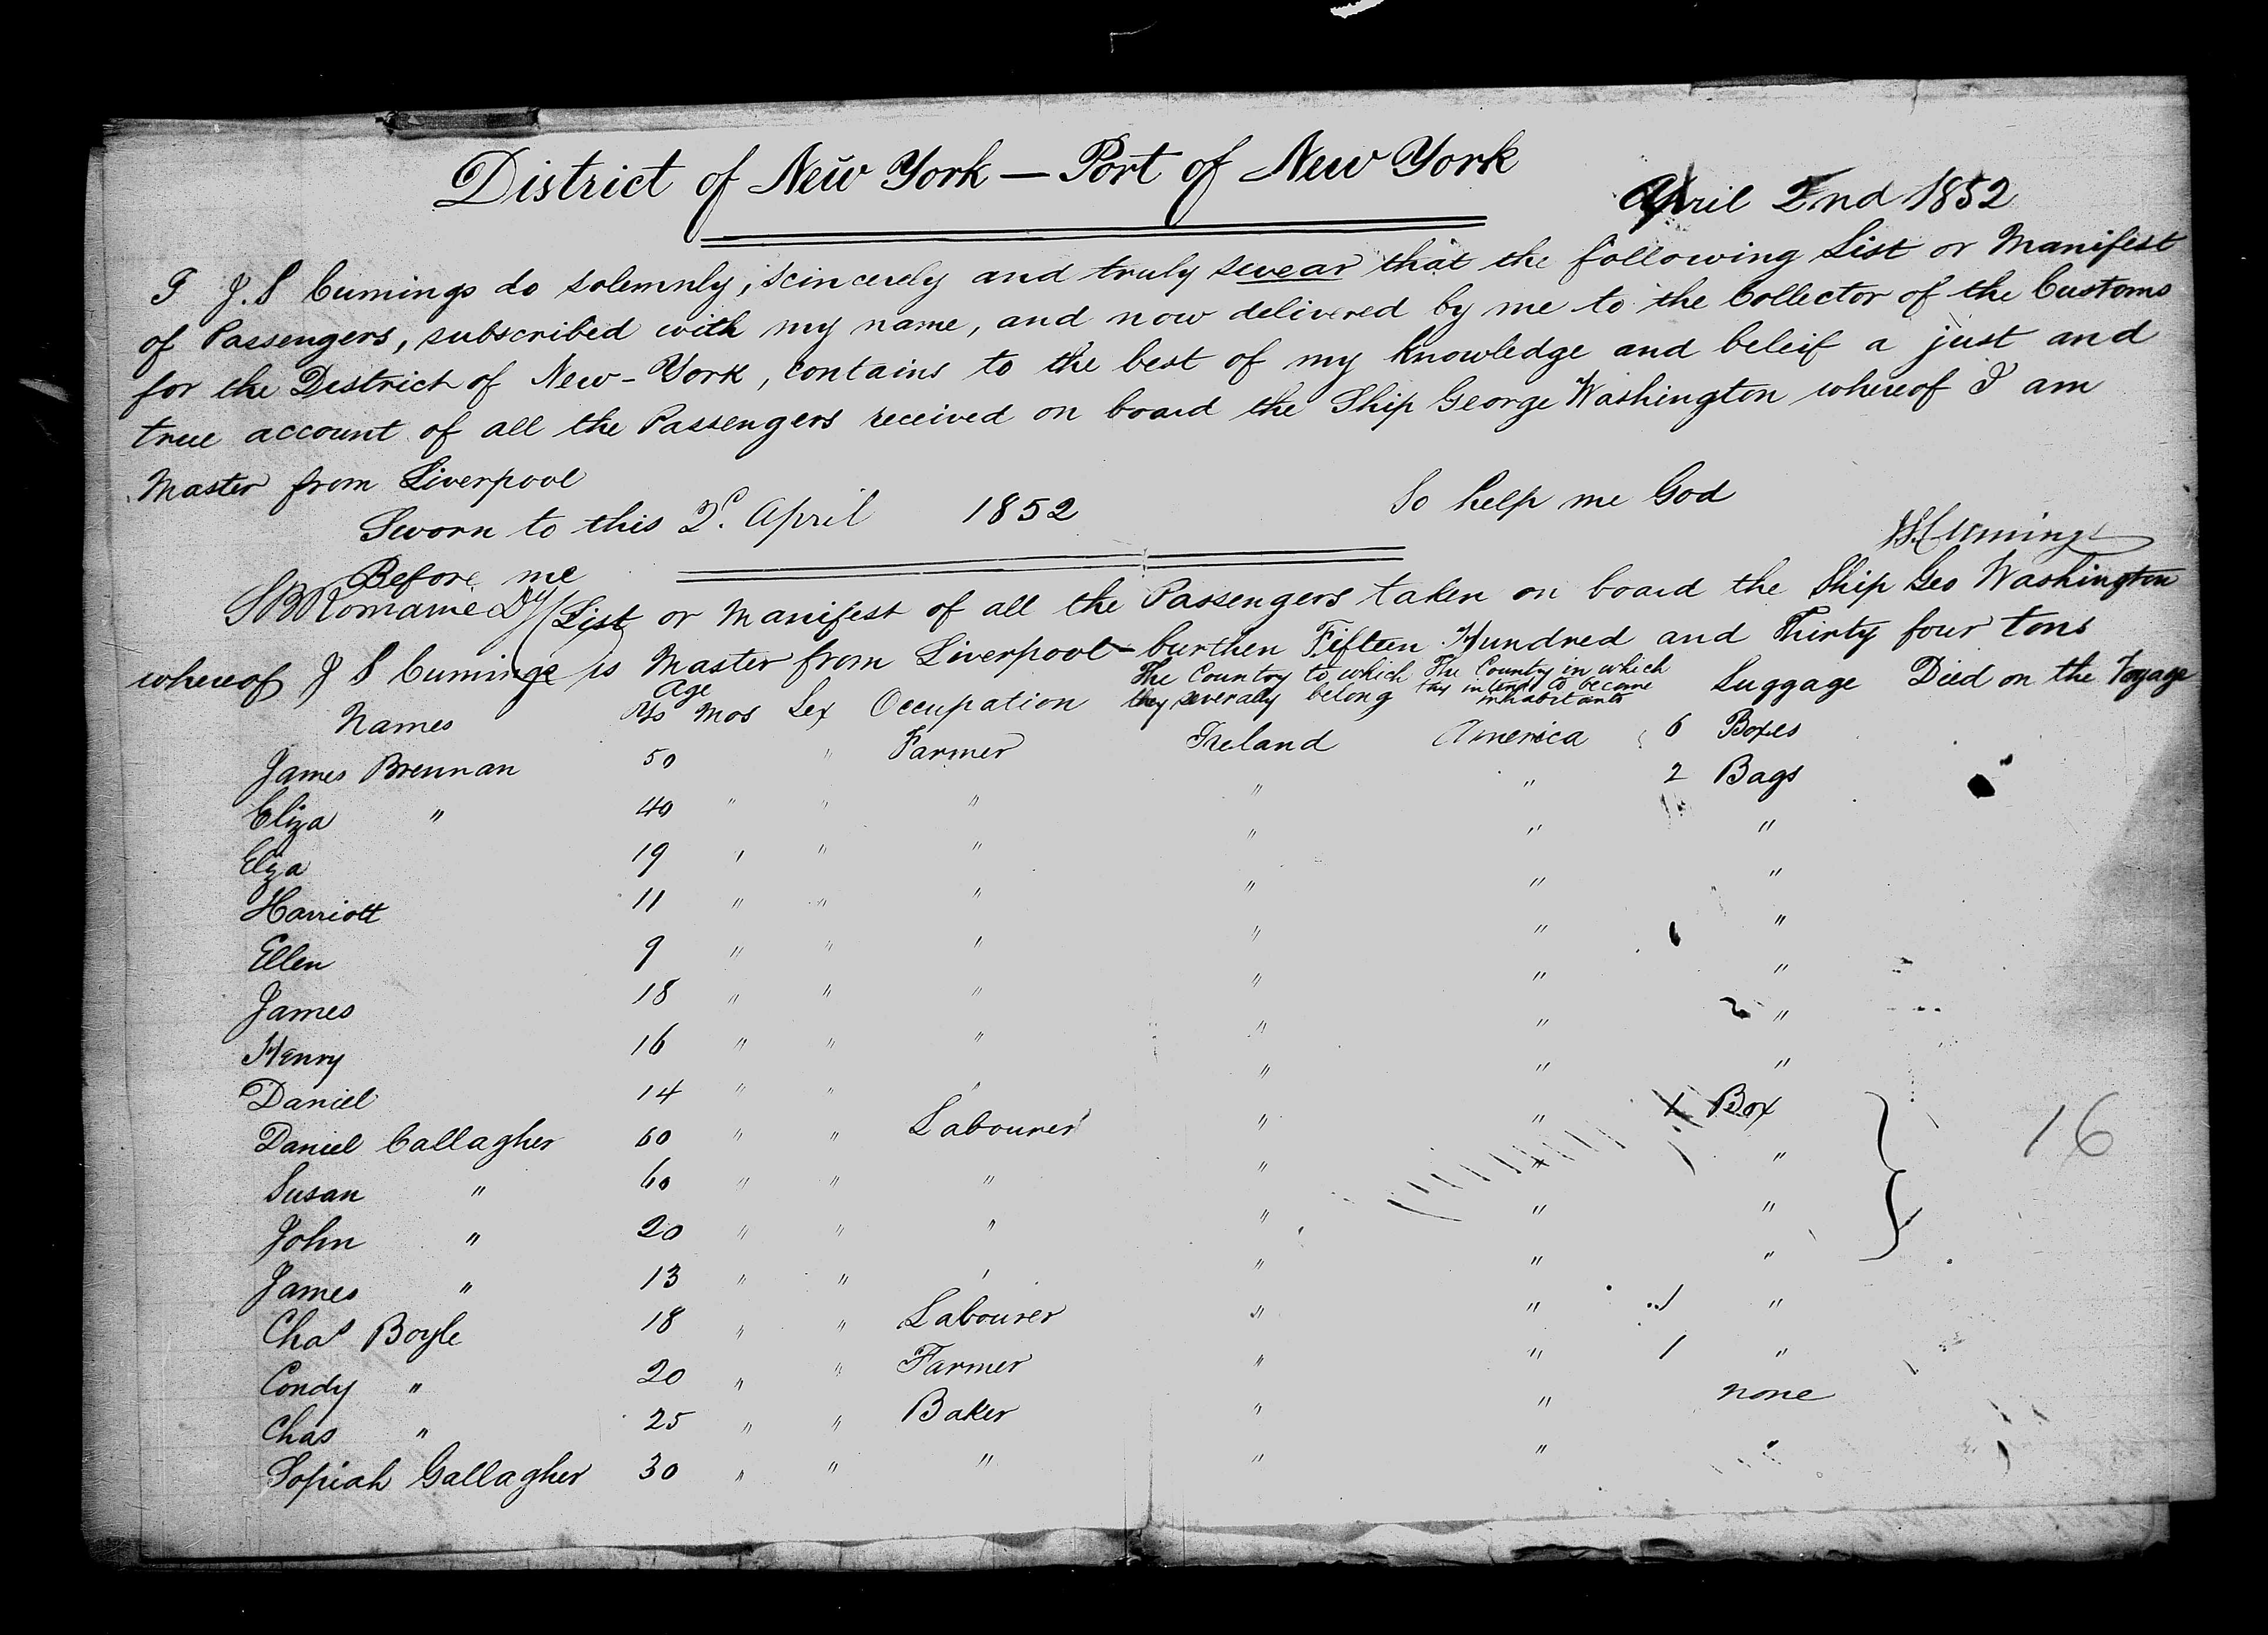 District of New York — Port of New York
April 2nd 1852
I J. S Cumings do solemnly, scincerely and truly swear that the following List or Manifest
of Passengers, subscribed with my name, and now delivered by me to the Collector of the Customs
for the District of New-York, contains to the best of my knowledge and beleif a just and
true account of all the Passengers received on board the Ship George Washington whereof I am
Master from Liverpool
So help me God
Sworn to this 2d. April 1852
JS Cumings
Before me
SB Romaine Dy
List or Manifest of all the Passengers taken on board the Ship Geo Washington
whereof J S Cumings is Master from Liverpool - burthen Fifteen Hundred and Thirty four tons
Names Age Yrs Mos Sex Occupation The Country to which they severally belong The Country in which they intend to become inhabitants Luggage Died on the Voyage
James Brennan 50 " Farmer Ireland America 6 Boxes
Eliza " 40 " " " " " 2 Bags
Eliza 19 " " " " " "
Harriott 11 " " " " " "
Ellen 9 " " " " " "
James 18 " " " " " "
Henry 16 " " " " " "
Daniel 14 " " " " " "
Daniel Callagher 60 " " Labourer " " 1 Box
Susan " 60 " " " " " "
John " 20 " " " " " "
James " 13 " " " " " "
16
Chas Boyle 18 " " Labourer " " 1 "
Condy " 20 " " Farmer " " 1 "
Chas " 25 " " Baker " " none
Sopiah Gallagher 30 " " " " " "